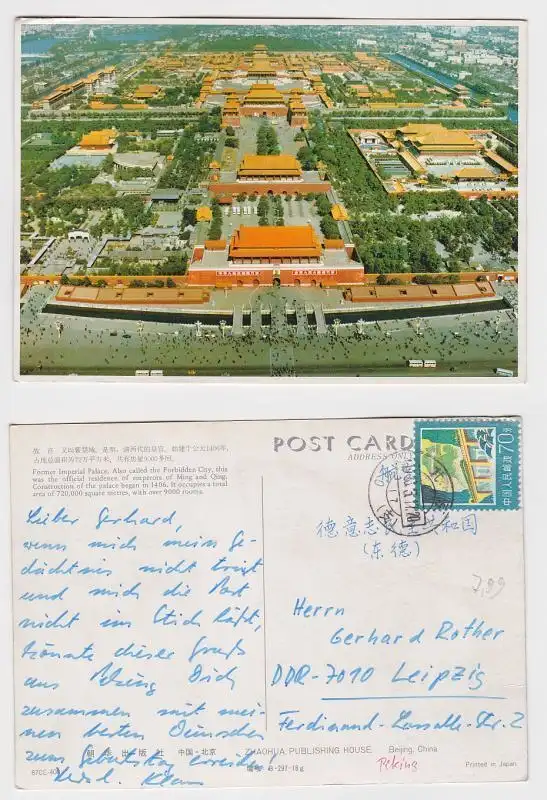 故宫 又叫紫禁城，是明、清两代的皇宫，始建于公元1406年，
占地总面积约72万平方米，共有房屋9000多间。
Former Imperial Palace. Also called the Forbidden City, this
was the official residence of emperors of Ming and Qing.
Construction of the palace began in 1406. It occupies a total
area of 720,000 square metres, with over 9000 rooms.
Lieber Gerhard,
wenn mich mein Ge-
dächtnis nicht trügt
und mich die Post
nicht im Stich läßt,
könnte dieser Gruß
aus Peking Dich
zusammen mit mei-
nen besten Wünschen
zum Geburtstag erreichen!
Herzl. Klaus
POST CARD
ADDRESS ONLY
70分
中国人民邮政
德意志民主共和国
(东德)
7,99
Herrn
Gerhard Rother
DDR-7010 Leipzig
Ferdinand-Lassalle-Str. 2
朝花出版社 中国·北京 ZHAOHUA PUBLISHING HOUSE Beijing, China
87CE-402
8-297-18g
Peking
Printed in Japan